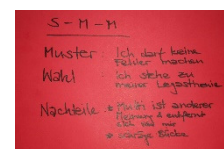 S - M - M
Muster: Ich darf keine
Fehler machen
Wahl Ich stehe zu
meiner Legasthenie
Nachteile * ist anderer
Meinung & entfernt
sich von mir
* Blicke